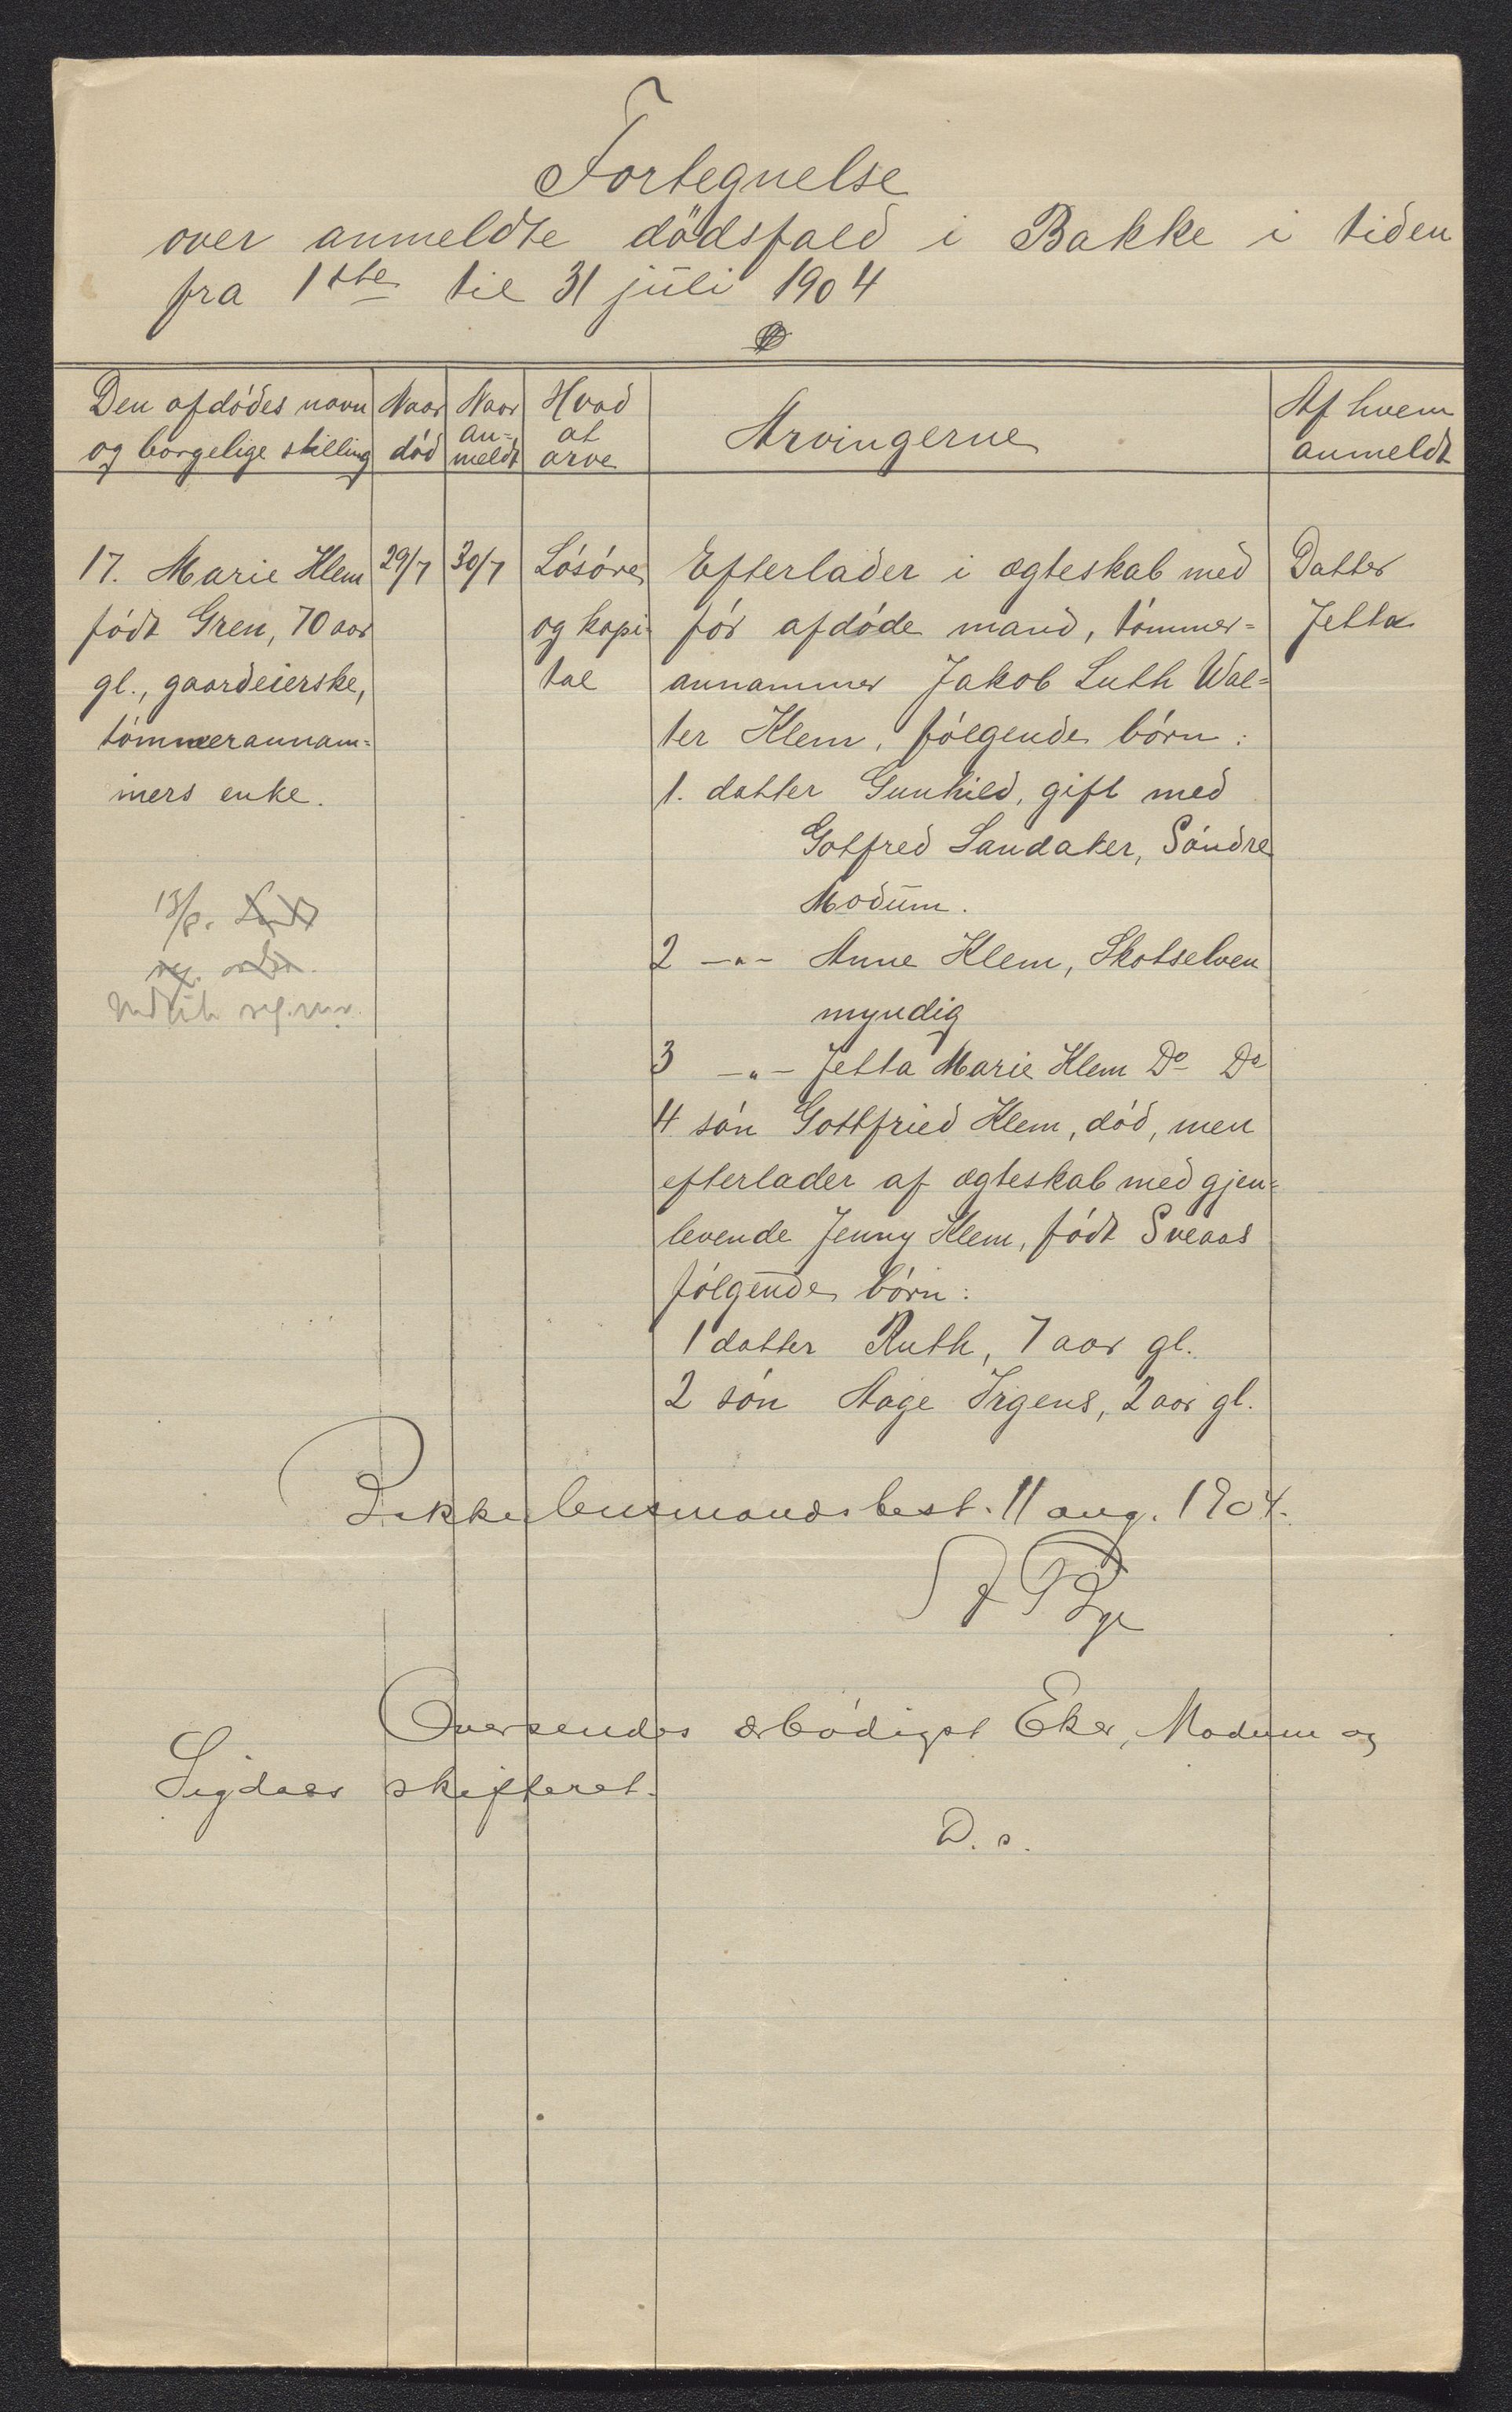 Fortegnelse
over anmeldte dödsfald i Bakke i tiden
fra 1ste til 31 juli 1904
Den afdødes navn
og borgelige stilling
Naar
død
Naar
an-
meldt
Hvad
at
arve
Arvingerne
Af hvem
anmeldt
17. Marie Klem
født Gren, 70 aar
gl., gaardeierske,
tømmerannam=
mers enke.
29/7
30/7
Løsøre
og kapi-
tal
Efterlader i ægteskab med
før afdøde mand, tømmer=
annammer Jakob Luth Wal=
ter Klem, følgende børn:
1. datter Gunhild, gift med
Gotfred Sandaker, Søndre
Modum.
2 -"- Anne Klem, Skotselven
myndig
3 -"- Jetta Marie Klem Do Do
4 søn Gottfried Klem, død, men
efterlader af ægteskab med gjen=
levende Jenny Klem, født Sveaas
følgende børn:
1 datter Ruth, 7 aar gl.
2 søn Aage Irgens, 2 aar gl.
Datter
Jetta
13/8.
Bakke lensmandsbest. 11 aug. 1904.
Oversendes ærbødigst Eker, Modum og
Sigdals skifteret.
D. s.